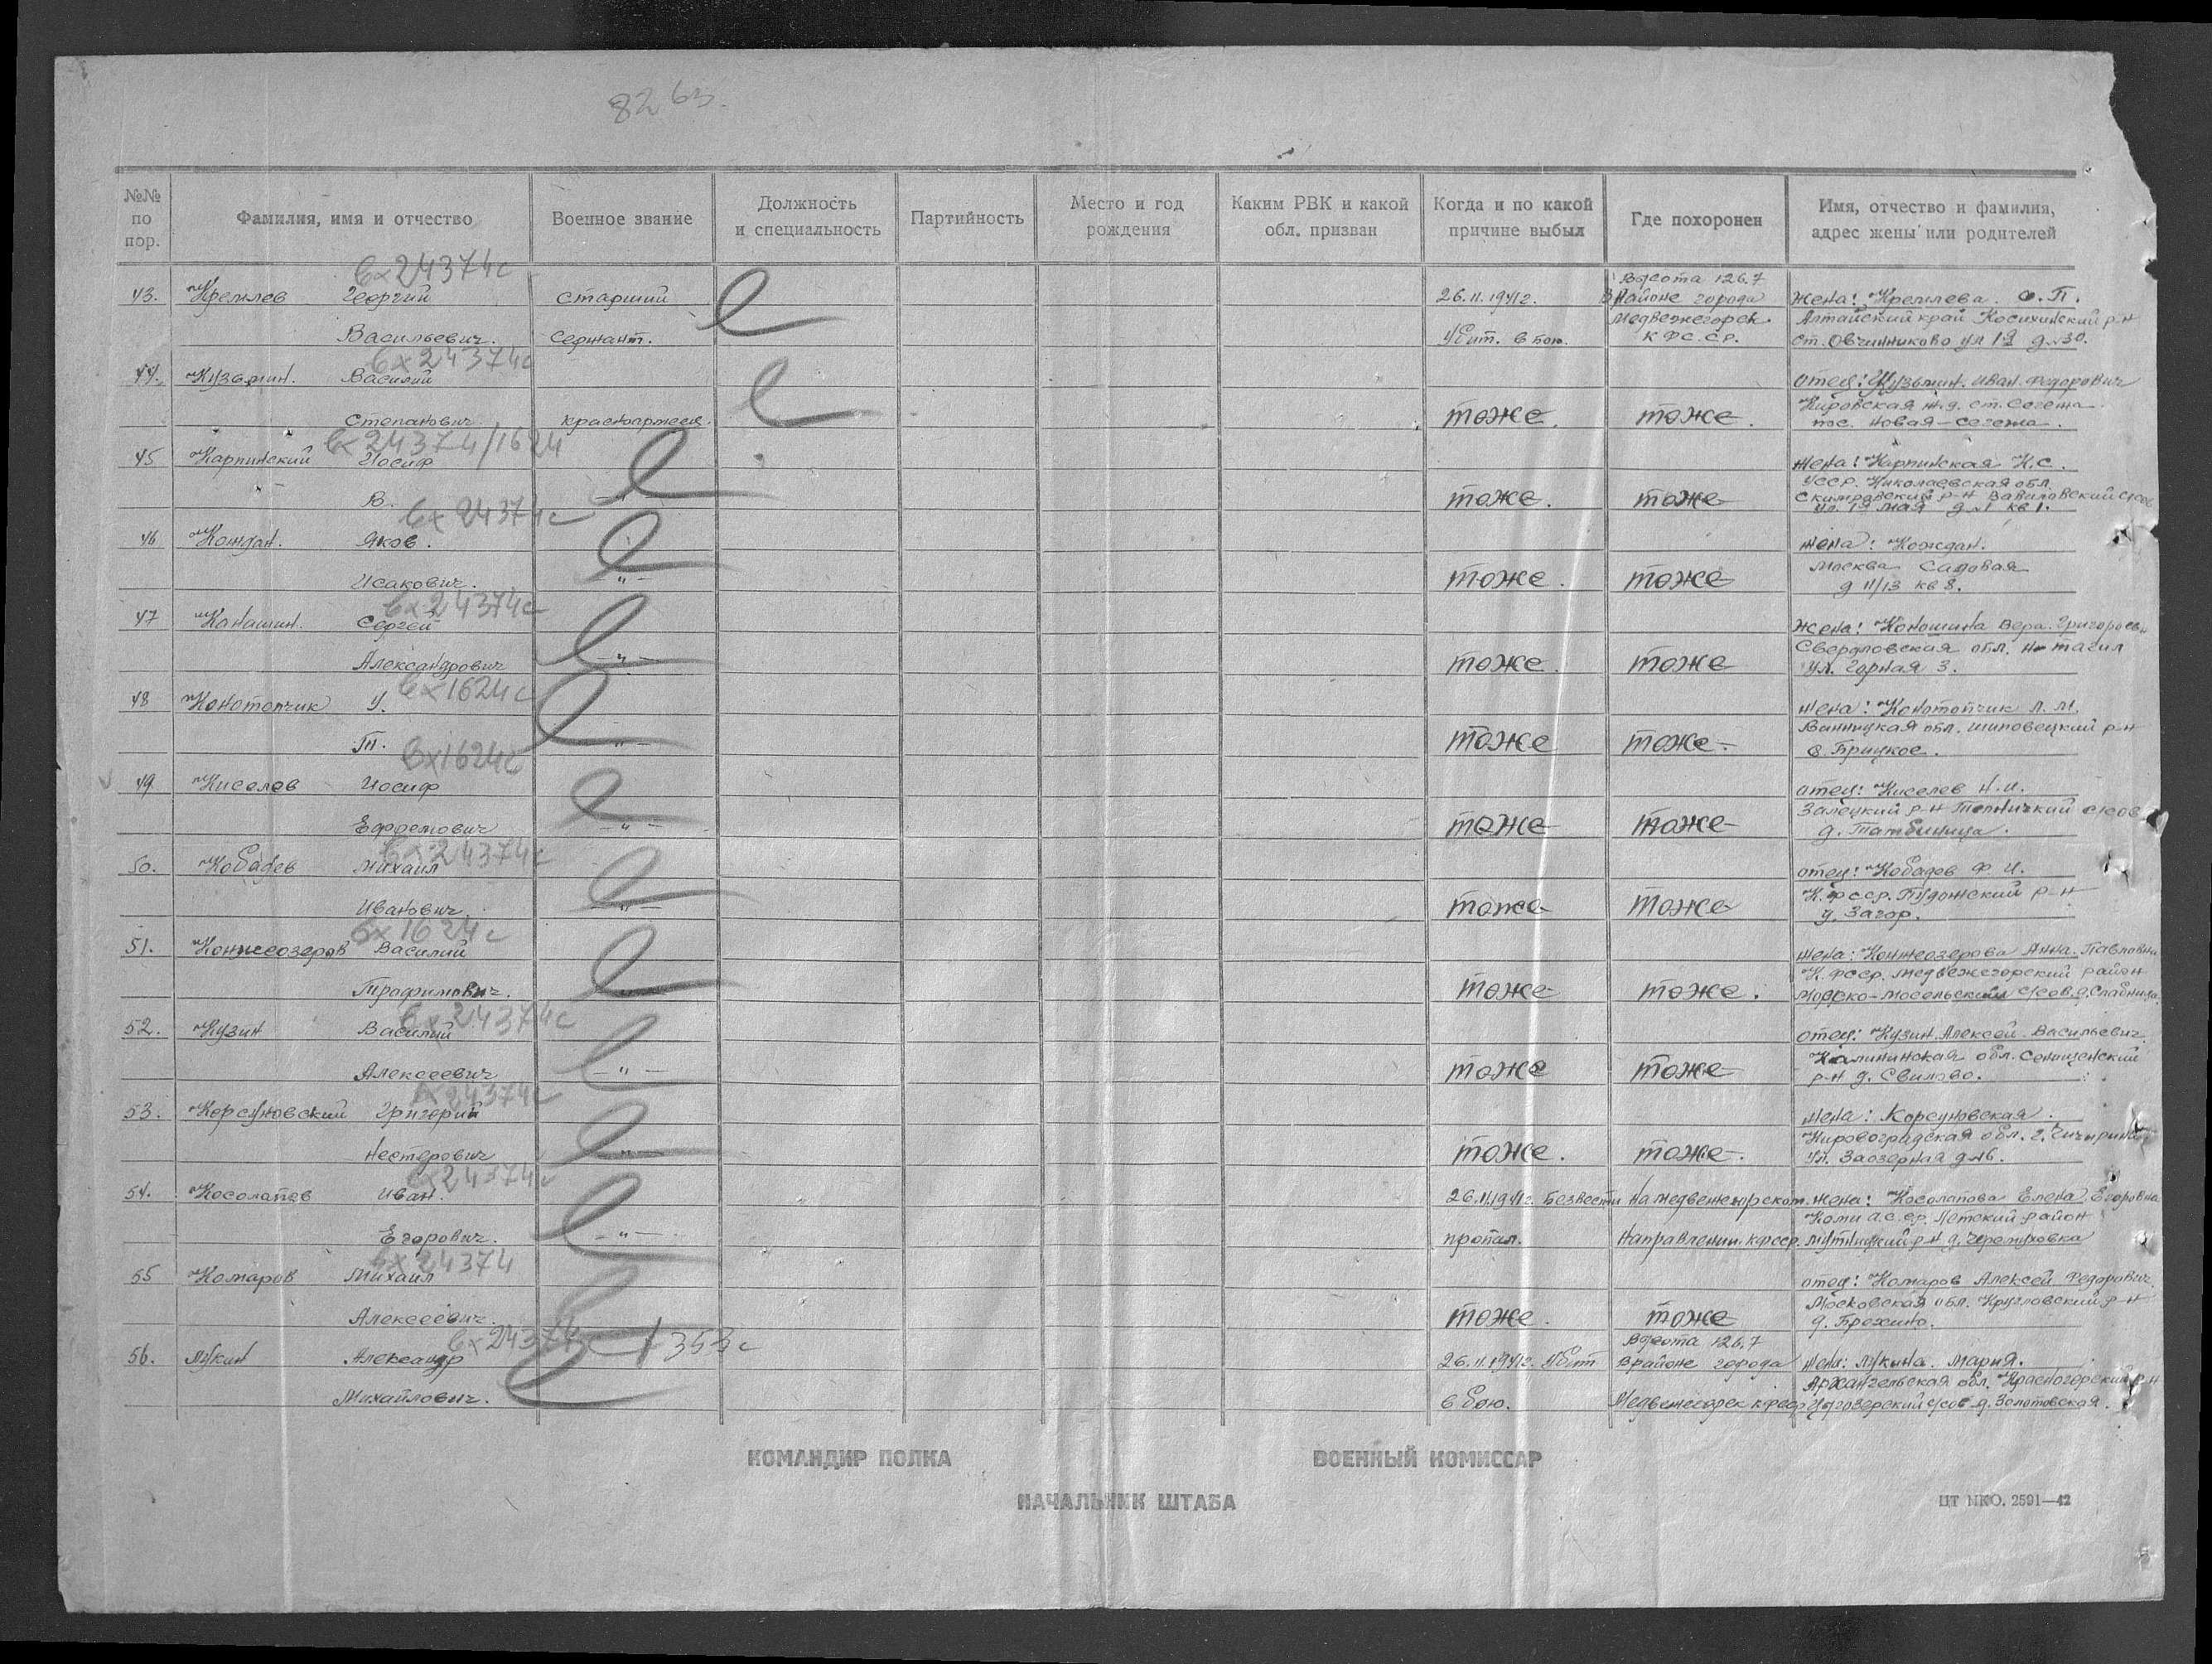 82 63.
№№ по пор.
Фамилия, имя и отчество
Военное звание
Должность и специальность
Партийность
Место и год рождения
Каким РВК и какой обл. призван
Когда и по какой причине выбыл
Где похоронен
Имя, отчество и фамилия, адрес жены или родителей
вх 24374с
43. Кремлев Георгий старший 26.11.1941г. Высота 126,7 в районе города жена: Кремлева. О.П.
Васильевич. сержант. Убит. в бою. Медвежегорск КФС.СР. Алтайский край Косихинский р-н
ст. Овчинниково ул 19 д. 30.
вх 24374с
44. Кузьмин. Василий отец: Кузьмин. Иван. Федорович
Степанович красноармеец. тоже. тоже. Кировская ж.д. ст. Сегежа
пос. Новая-Сегежа.
вх 24374/1624
45 Карпинский Иосиф жена: Карпинская К.С.
В. -"- тоже. тоже УССР. Николаевская обл.
р-н Вавиловский с/сов
ул. 1е мая д. 1 кв 1.
вх 24374с
46 Кождан. Яков. жена: Кождан.
Исакович. -"- тоже. тоже Москва Садовая
д 11/13 кв 8.
вх 24374с
47 Канашин. Сергей жена: Коношина Вера. Григорьевн
Александрович -"- тоже. тоже Свердловская обл. Н-тагил
ул. Горная 3.
вх 1624с
48 Конотопчик У. жена: Конотопчик Л. М.
П. -"- тоже тоже- Винницкая обл. р-н
с. Брицкое.
вх 1624с
49 Киселев Иосиф отец: Киселев Н.И.
Ефремович -"- тоже тоже р-н с/сов
д.
вх 24374с
50. Кобадев Михаил отец: Кобадев Ф И.
Иванович. -"- тоже тоже К.фсср. Пудожский р-н
у. Загор.
вх 1624с
51. Конжеозеров Василий жена: Конжеозерова Анна. Павловна
Трофимович. -"- тоже тоже. К. фсср. Медвежегорский район
с/сов. д.
вх 24374с
52. Кузин Василий отец: Кузин Алексей. Васильевич.
Алексеевич -"- тоже тоже Калининская обл.
р-н д. Свилово.
вх 24374с
53. Корсуновский Григорий жена: Корсуновская.
Нестерович -"- тоже. тоже. Кировоградская обл. г.
ул. Заозерная д. 16.
вх 24374с
54. Косолапов Иван. 26.11.1941г. Безвести на медвежегорском жена: Косолапова Елена Егоровна
Егорович. -"- пропал. направлении. кфсср. Коми а.с.ср. район
р-н д. Черемуховка
вх 24374
55 Комаров Михаил отец: Комаров Алексей Федорович
Алексеевич. тоже. тоже Московская обл. р-н
д.
вх 24374с 353с
56. Лукин Александр 26.11.1941г. Убит Высота 126,7 в районе города жена: Лукина. Мария.
Михайлович. в бою. Медвежегорск кфсср Архангельская обл. Красногорский р-н
с/сов д. Золотовская.
КОМАНДИР ПОЛКА
ВОЕННЫЙ КОМИССАР
НАЧАЛЬНИК ШТАБА
ЦТ НКО. 2591—42